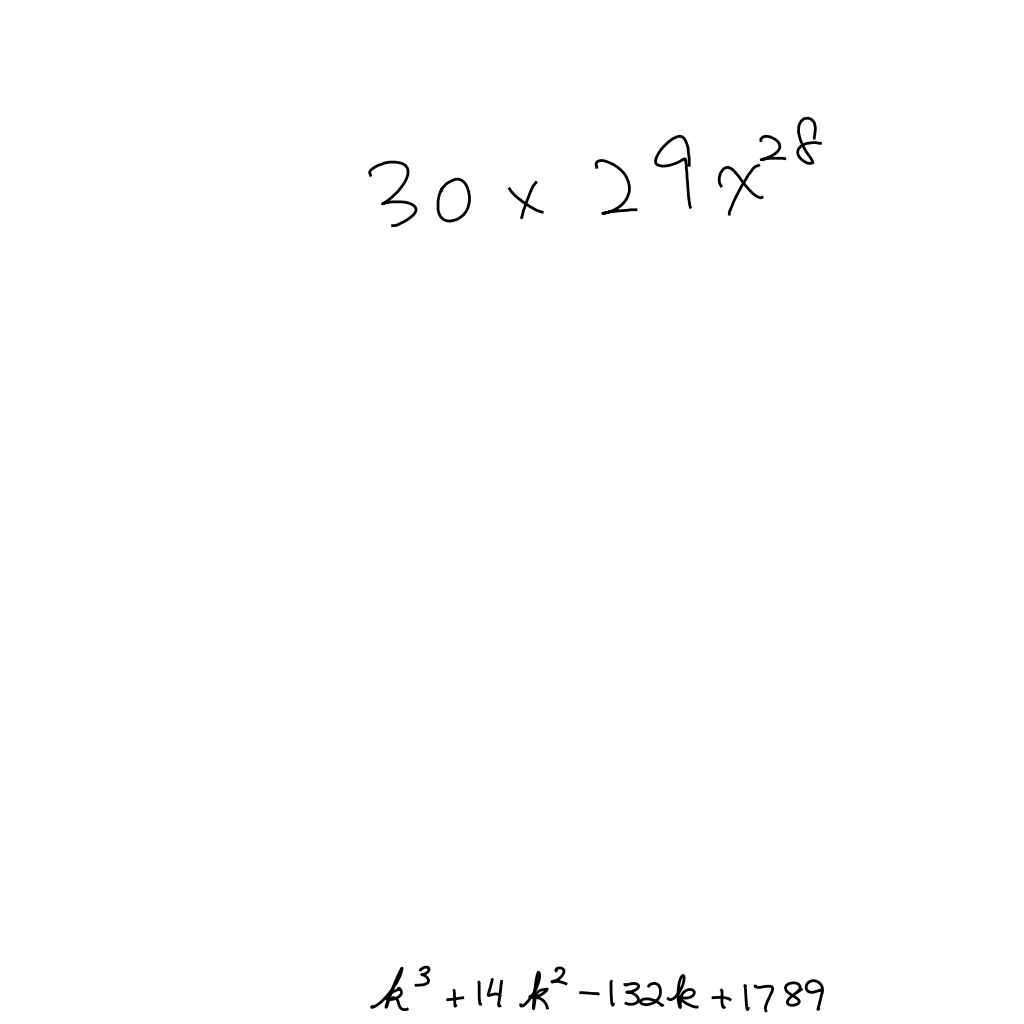 30 × 29x^28
k^3 + 14k^2 - 132k + 1789